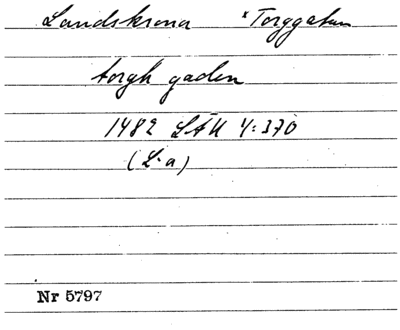 Landskrona *Torggatan
torgh gaden
1482 LÄU 4:370
(L.a)
Nr 5797